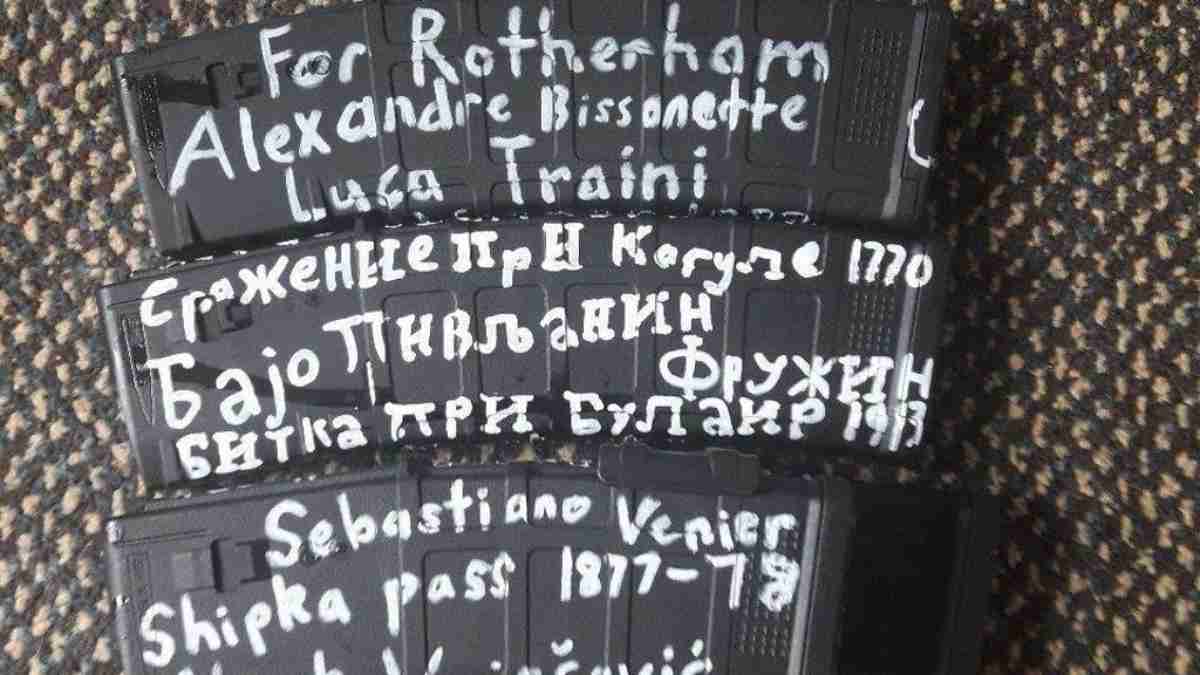 For Rotherham
Alexandre Bissonette
Luca Traini
Сражение при Кагуле 1770
Бајо Пивљанин
Фружин
битка при Булаир 1913
Sebastiano Venier
Shipka pass 1877-78